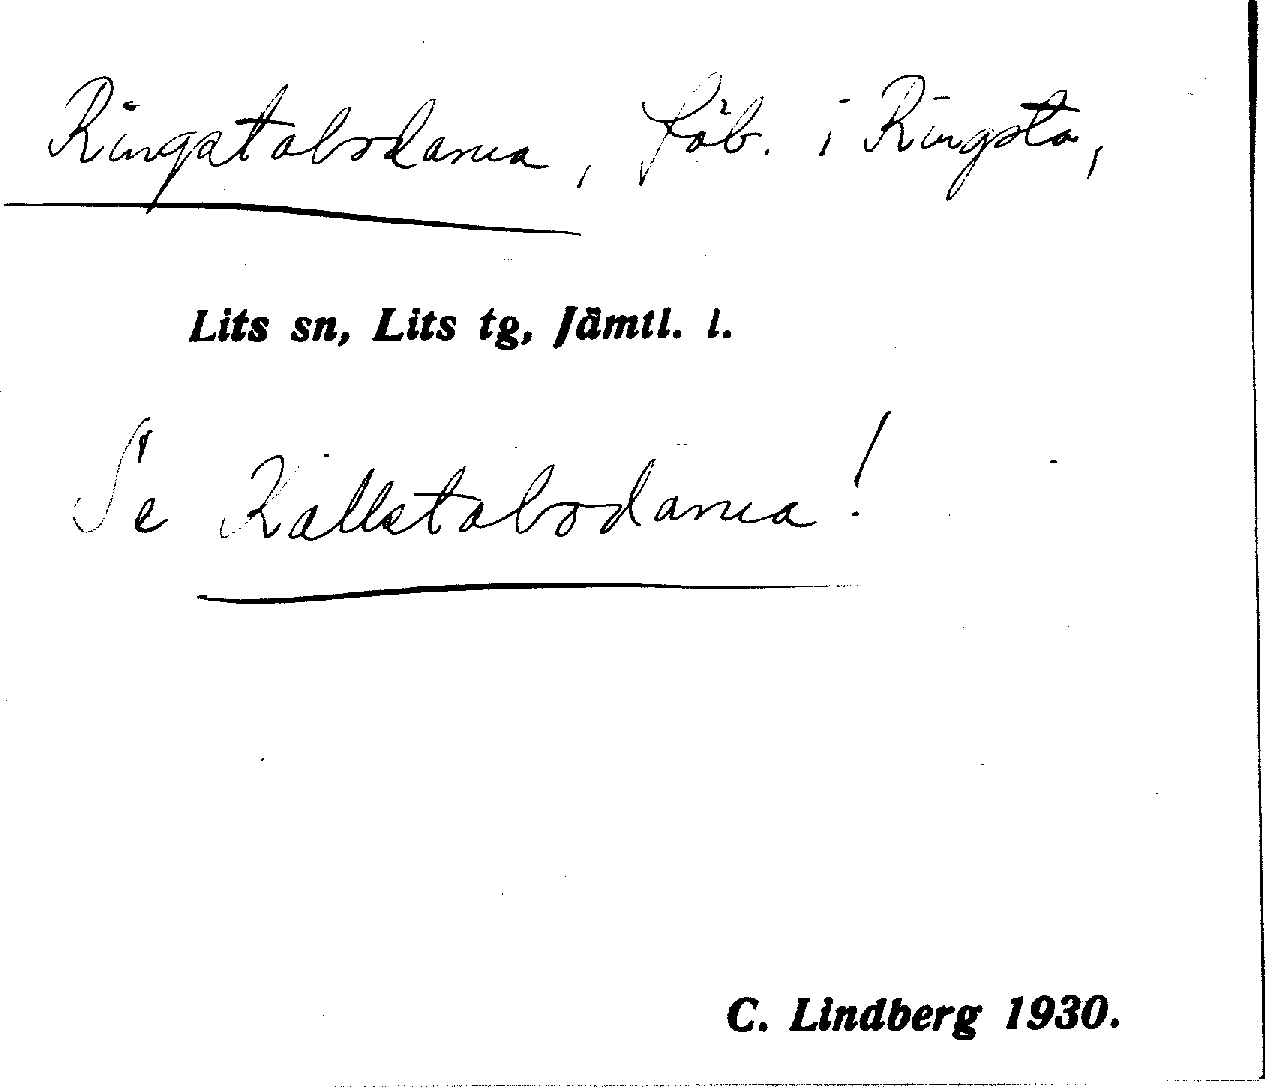 Ringstabodarna, fäb. i Ringsta,
Lits sn, Lits tg, Jämtl. l.
Se Kallstabodarna!
C. Lindberg 1930.